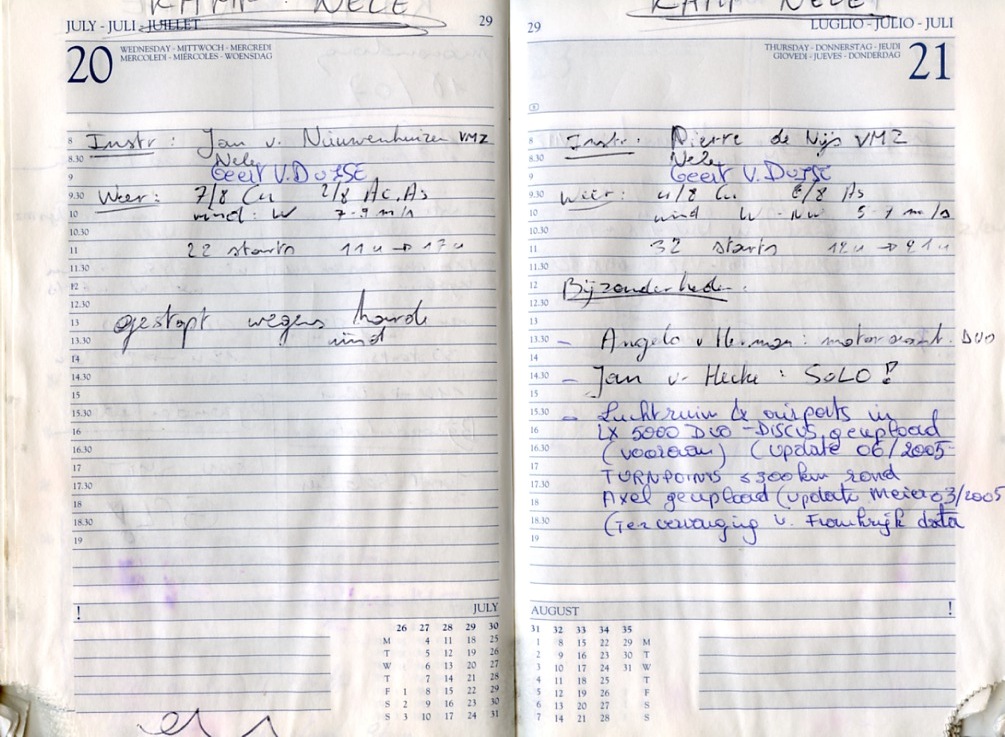 KAMP NELE
JULY - JULI - JUILLET 29
20 WEDNESDAY - MITTWOCH - MERCREDI
MERCOLEDI - MIÉRCOLES - WOENSDAG
8 Instr: Jan v. Nieuwenhuizen VMZ
8.30 Nele
9 Geert V. DUFSE
9.30 Weer: 7/8 Cu 2/8 Ac.As
10 wind: W 7-9 m/s
10.30
11 22 starts 11u → 17u
11.30
12
12.30
13 gestopt wegens harde
13.30 wind
14
14.30
15
15.30
16
16.30
17
17.30
18
18.30
19
! JULY
26 27 28 29 30
M 4 11 18 25
T 5 12 19 26
W 6 13 20 27
T 7 14 21 28
F 1 8 15 22 29
S 2 9 16 23 30
S 3 10 17 24 31
KAMP NELE
29 LUGLIO - JULIO - JULI
THURSDAY - DONNERSTAG - JEUDI 21
GIOVEDI - JUEVES - DONDERDAG
8 Instr: Pierre de Nijs VMZ
8.30 Nele
9 Geert V. DUFSE
9.30 Weer: 4/8 Cu 6/8 As
10 wind W - NW 5-7 m/s
10.30
11 32 starts 12u → 21u
11.30
12 Bijzonderheden:
12.30
13
13.30 - Angelo v Herman: motor DUO
14
14.30 - Jan v. Hecke: SOLO!
15
15.30 - Luchtruim & airports in
16 LX 5000 DUO-DISCUS geupload
16.30 (vooraan) (update 06/2005
17 TURNPOINTS ≤300km rond
17.30 Axel geupload (update Meier 03/2005
18 (Ter vervanging v. Frankrijk data
18.30
19
AUGUST !
31 32 33 34 35
1 8 15 22 29 M
2 9 16 23 30 T
3 10 17 24 31 W
4 11 18 25 T
5 12 19 26 F
6 13 20 27 S
7 14 21 28 S